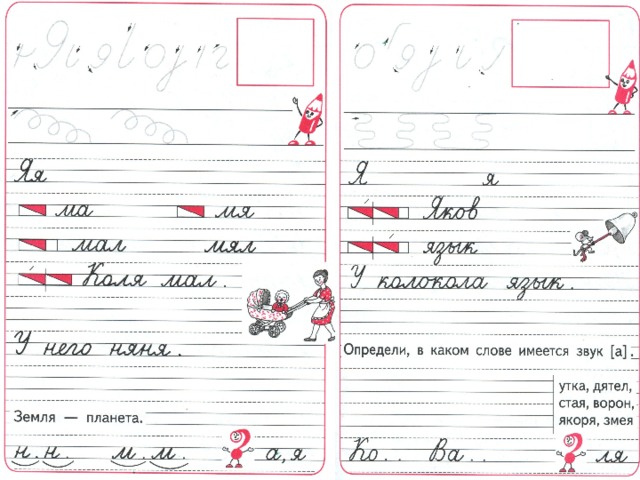 Яя
ма мя
мал мял
Коля мал.
У него няня.
Земля — планета.
н.н. м.м. ? а,я
Я я
Яков
язык
У колокола язык.
Определи, в каком слове имеется звук [а].
утка, дятел,
стая, ворон,
якоря, змея
Ко.. Ва.. ? ля